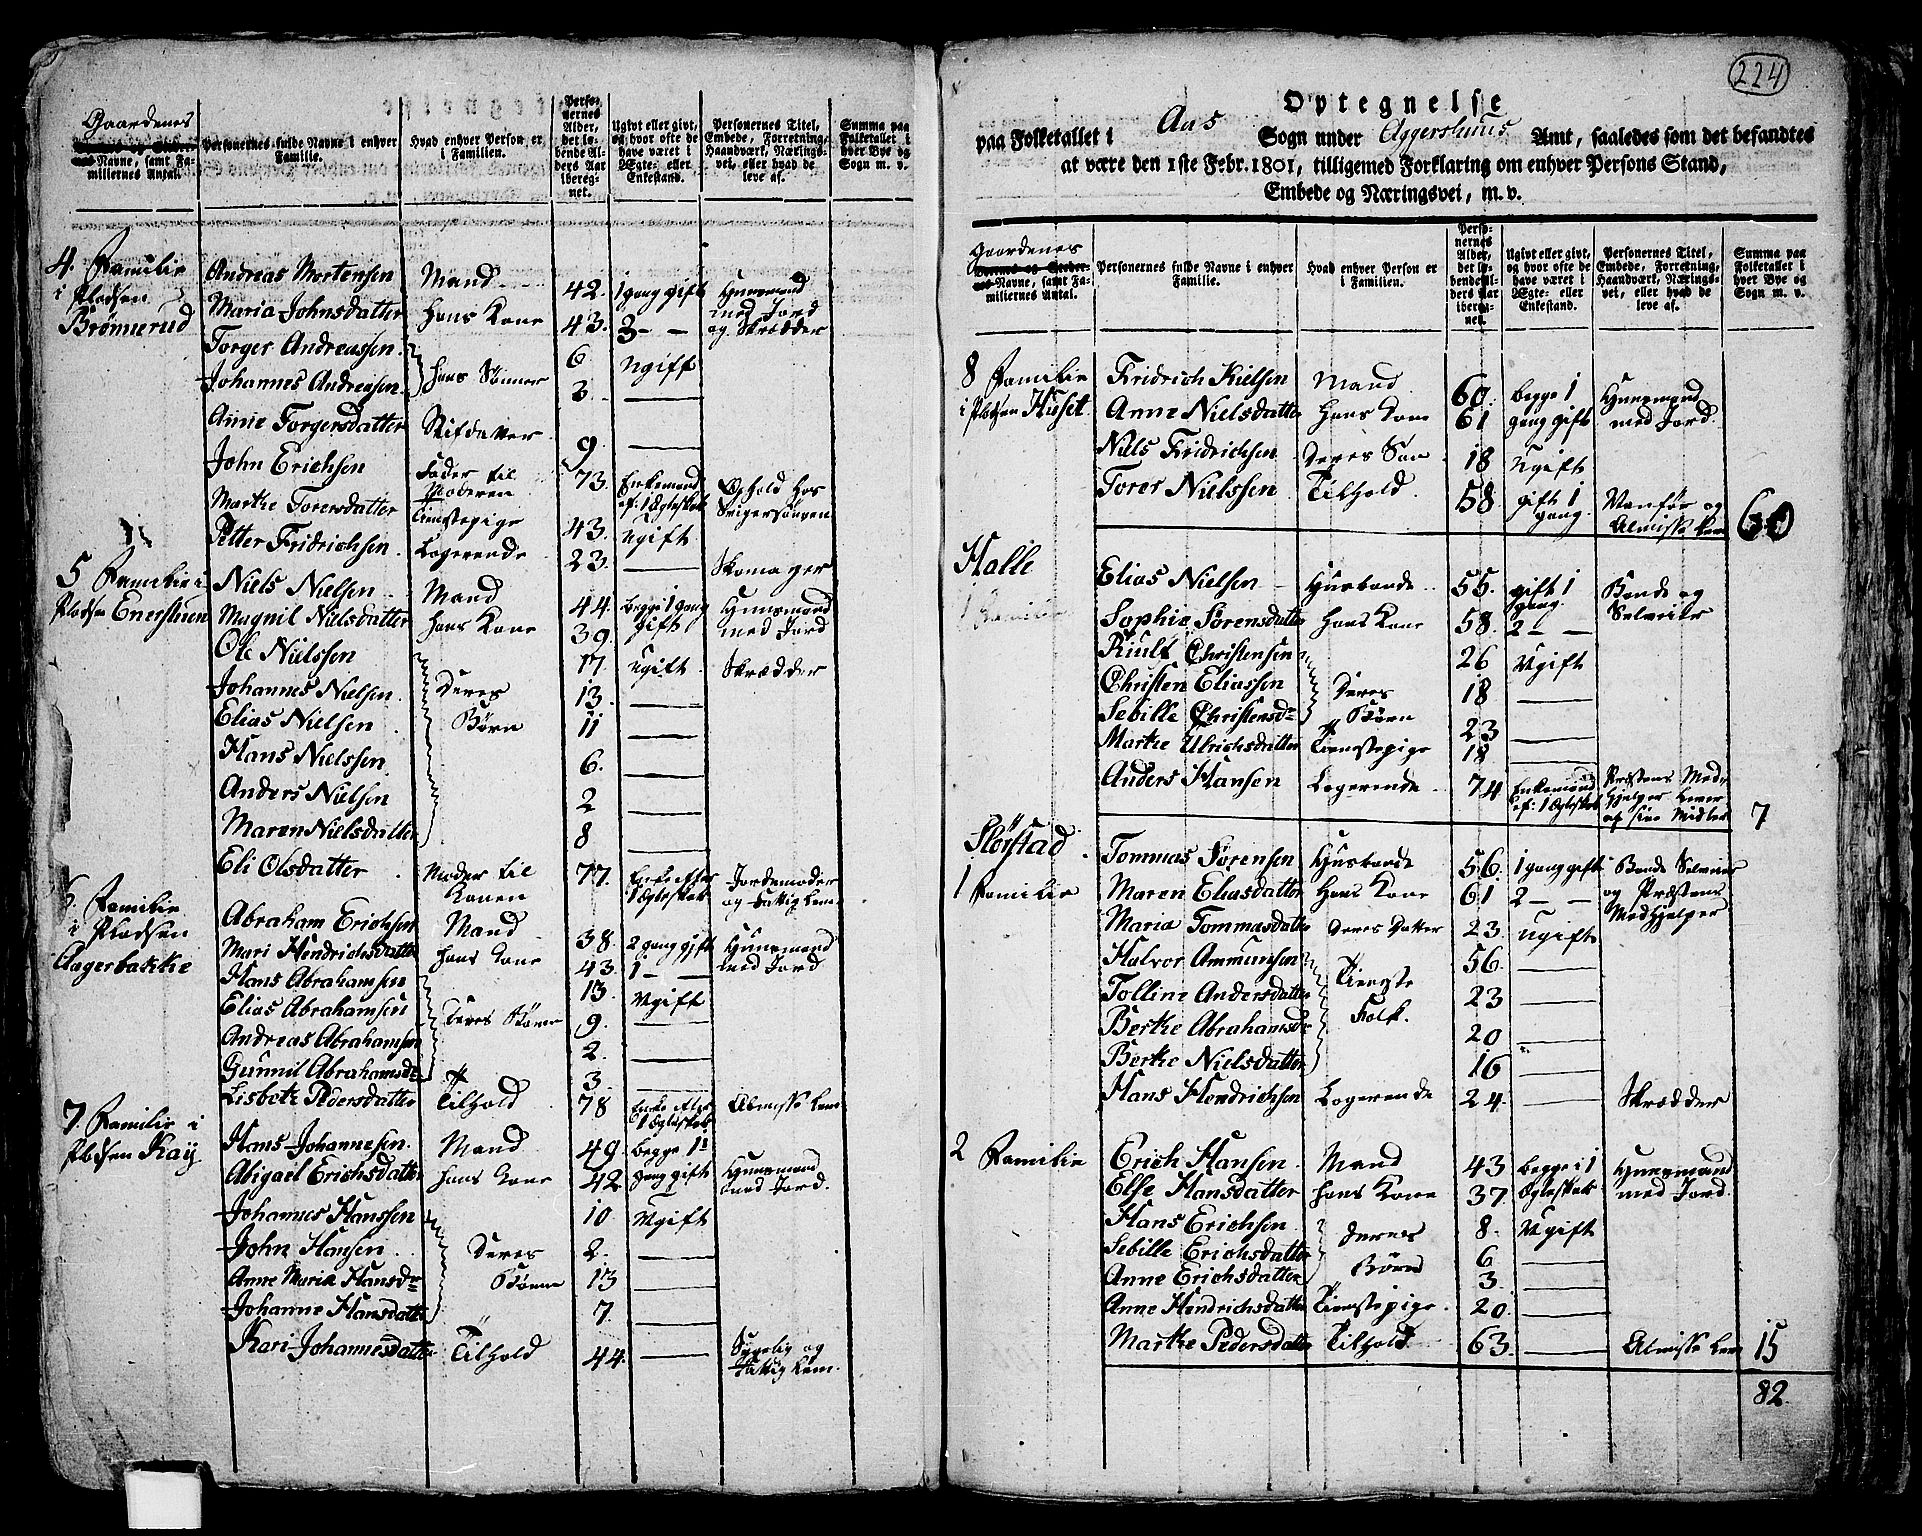 Gaardenes
Byernes og Steder-
nes Navne, samt Fa-
milliernes Antal.
Personernes fulde Navne i enhver
Familie.
Hvad enhver Person er
i Familien.
Perso-
nernes
Alder,
det lø-
bende Al-
ders Aar
iberég-
net.
Ugivt eller givt,
og hvor ofte de
have været i
Ægte- eller
Enkestand.
Personernes Titel,
Embede, Forretning,
Haandværk, Nærings-
vei, eller hvad de
leve af.
Summa paa
Folketallet i
hver Bye og
Sogn m. v.
4. Familie
i Pladsen
Brönnerud
Andreas Mortensen Mand 42. 1 gang gift Huusmand
Maria Johnsdatter hans Kone 43. 3 — — med Jord
og Skrædder
Torger Andreassen 6 ugift
Johannes Andreasen hans Sönner 3 —
Anne Torgersdatter Stifdatter 9 —
John Erichsen Fader til Moderen 73. Enkemand ef: 1 Ægteskab Ophold hos Svigersønnen
Marthe Torersdatter Tienstepige 43. ugift
Petter Fridrichsen Logerende 23. — Skomager
5 Familie i
Pladsen Enershuen
Niels Nielsen Mand 44. begge 1 gang Huusmand
Magnil Nielsdatter hans Kone 39. gift med Jord
Ole Nielssen 17. ugift Skrædder
Johannes Nielsen Deres 13. —
Elias Nielsen Børn 11 —
Hans Nielssen 6. —
Anders Nielsen 2 —
Maren Nielsdatter 8 —
Eli Olsdatter Moder til Konen 77. Enke efter 1 Ægteskab Jordemoder og fattig Lem
6. Familie
i Pladsen
Aagerbakke
Abraham Erichsen Mand 38. 2 gang gift Huusmand
Mari Hendrichsdatter hans Kone 43. 1 — — med Jord
Hans Abrahamsen 13. Ugift
Elias Abrahamsen Deres Börn 9. —
Andreas Abrahamsen 2. —
Gunnil Abrahamsdr 3. —
Lisbeth Pedersdatter Tilhold 78 Enke efter 1 Ægteskab Almisse Lem
7. Familie i
Pladsen Kay
Hans Johannesen Mand 49 begge 1
Abigael Erichsdatter hans Kone 42 gang gift Huusmand med Jord.
Johannes Hanssen 10 Ugift
John Hansen Deres 2. —
Anne Maria Hansdr Börn 13 —
Johanne Hansdatter 7. —
Kari Johannesdatter Tilhold 44. — Sygelig og fattig Lem.
224
Optegnelse
paa Folketallet i Aas Sogn under Aggershuus Amt, saaledes som det befandtes
at være den 1ste Febr. 1801, tilligemed Forklaring om enhver Persons Stand,
Embede og Næringsvei, m. v.
Gaardenes
Byernes og Steder-
nes Navne, samt Fa-
milliernes Antal.
Personernes fulde Navne i enhver
Familie.
Hvad enhver Person er
i Familien.
Perso-
nernes
Alder,
det lø-
bende Al-
ders Aar
iberég-
net.
Ugivt eller givt,
og hvor ofte de
have været i
Ægte- eller
Enkestand.
Personernes Titel,
Embede, Forretning,
Haandværk, Nærings-
vei, eller hvad de
leve af.
Summa paa
Folketallet i
hver Bye og
Sogn m. v.
8 Familie
i Pladsen Huset
Fridrich Kielsen Mand 60. begge 1 Huusmand
Anne Nielsdatter hans Kone 61 gang gift med Jord.
Niels Fridrichsen Deres Søn 18 Ugift
Torer Nielssen Tilhold. 58. gift 1 gang. Vanfør og Almisse Lem 60
Halle
1 Familie
Elias Nielsen Husbonde 55. gift 1 gang. Bonde og Selveier
Sophia Sørensdatter hans Kone 58. 2 — —
Kiult Christensen 26 Ugift
Christen Eliassen Deres 18 —
Sebille Christensdr Børn 23 —
Marthe Ulrichsdatter Tienstepige 18 —
Anders Hansen Logerende 74 Enkemand ef: 1 Ægteskab Præstens Med-
hjelper lever
af sine Midler 7
Slörstad
1 Familie
Tommas Sørensen Husbonde 56. 1 gang gift Bonde Selveier
Maren Eliasdatter Hans Kone 61 2 — — og Præstens
Maria Tommasdatter Deres Datter 23. ugift Medhjelper
Halvor Ammunsen Tieneste 56. —
Tolline Andersdatter Folk. 23 —
Berthe Abrahamsdr 20 —
Berthe Nielsdatter 16 —
Hans Hendrichsen Logerende 24. — Skrædder
2 Familie
Erich Hansen Mand 43 begge i 1 Huusmand
Else Hansdatter hans Kone 37. Ægteskab med Jord
Hans Erichsen Deres 8. Ugift
Sebille Erichsdatter Børn 6 —
Anne Erichsdatter 3. —
Anne Hendrichsdatter Tienstepige. 20. —
Marthe Pedersdatter Tilhold 63. — Almisse Lem 15
82.